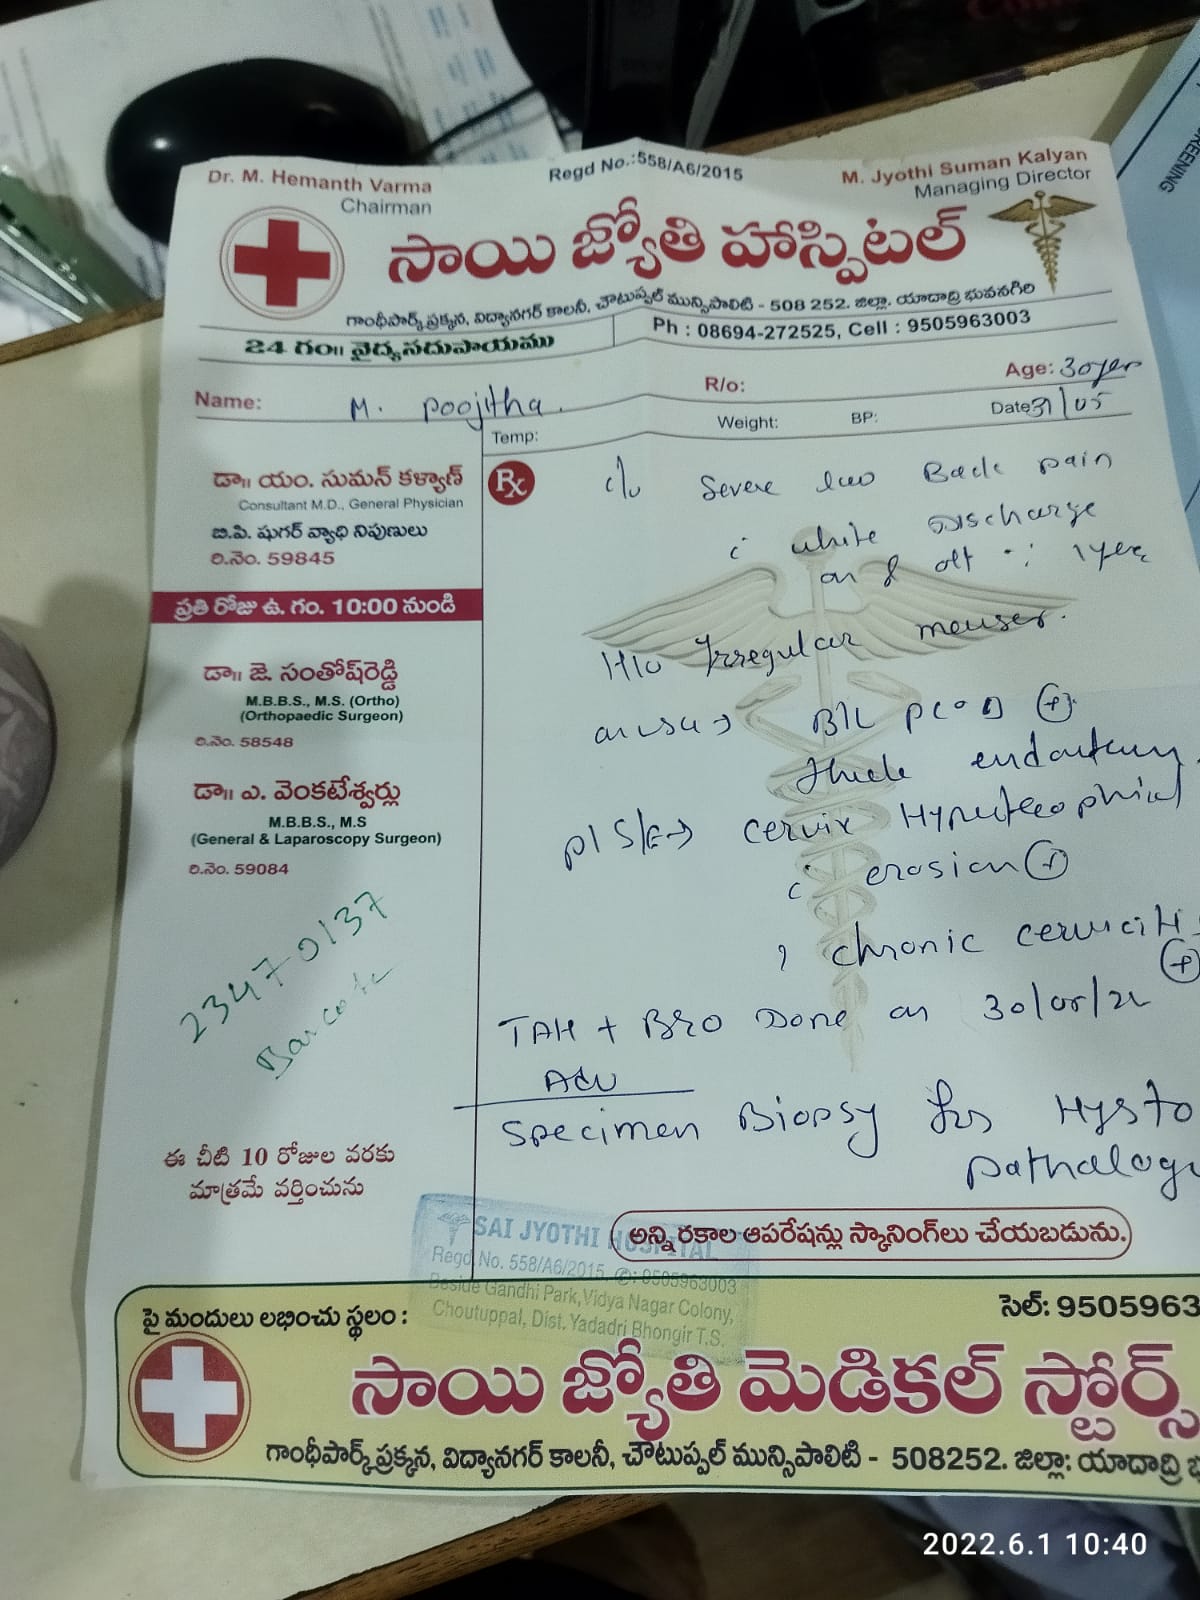 Dr. M. Hemanth Varma
Chairman
Regd No.:558/A6/2015
M. Jyothi Suman Kalyan
Managing Director
సాయి జ్యోతి హాస్పిటల్
గాంధీపార్క్ ప్రక్కన, విద్యానగర్ కాలనీ, చౌటుప్పల్ మున్సిపాలిటి - 508 252. జిల్లా. యాదాద్రి భువనగిరి
24 గం॥ వైద్యసదుపాయము
Ph : 08694-272525, Cell : 9505963003
Name: M. Poojitha.
R/o:
Age: 30yrs
Temp:
Weight:
BP:
Date 31/05
డా॥ యం. సుమన్ కళ్యాణ్
Consultant M.D., General Physician
బి.పి. షుగర్ వ్యాధి నిపుణులు
రి.నెం. 59845
ప్రతి రోజు ఉ. గం. 10:00 నుండి
డా॥ జె. సంతోష్‌రెడ్డి
M.B.B.S., M.S. (Ortho)
(Orthopaedic Surgeon)
రి.నెం. 58548
డా॥ ఎ. వెంకటేశ్వర్లు
M.B.B.S., M.S
(General & Laparoscopy Surgeon)
రి.నెం. 59084
23470137
Barcode
ఈ చీటి 10 రోజుల వరకు
మాత్రమే వర్తించును
Rx
c/o Severe low Back pain
c white Discharge
on & off ∵ 1 year
H/o Irregular menses.
B/L PCOD (+)
Thick
P/S/E→ cervix
c erosion (+)
, chronic
(+)
TAH + BSO Done on 30/05/22
Adv
Specimen Biopsy for Hysto
pathalogy
అన్ని రకాల ఆపరేషన్లు స్కానింగ్‌లు చేయబడును.
SAI JYOTHI HOSPITAL
Regd No. 558/A6/2015, ✆: 9505963003
Beside Gandhi Park, Vidya Nagar Colony,
Choutuppal, Dist. Yadadri Bhongir T.S.
పై మందులు లభించు స్థలం :
సెల్: 9505963
సాయి జ్యోతి మెడికల్ స్టోర్స్
గాంధీపార్క్ ప్రక్కన, విద్యానగర్ కాలనీ, చౌటుప్పల్ మున్సిపాలిటి - 508252. జిల్లా: యాదాద్రి భు
2022.6.1 10:40